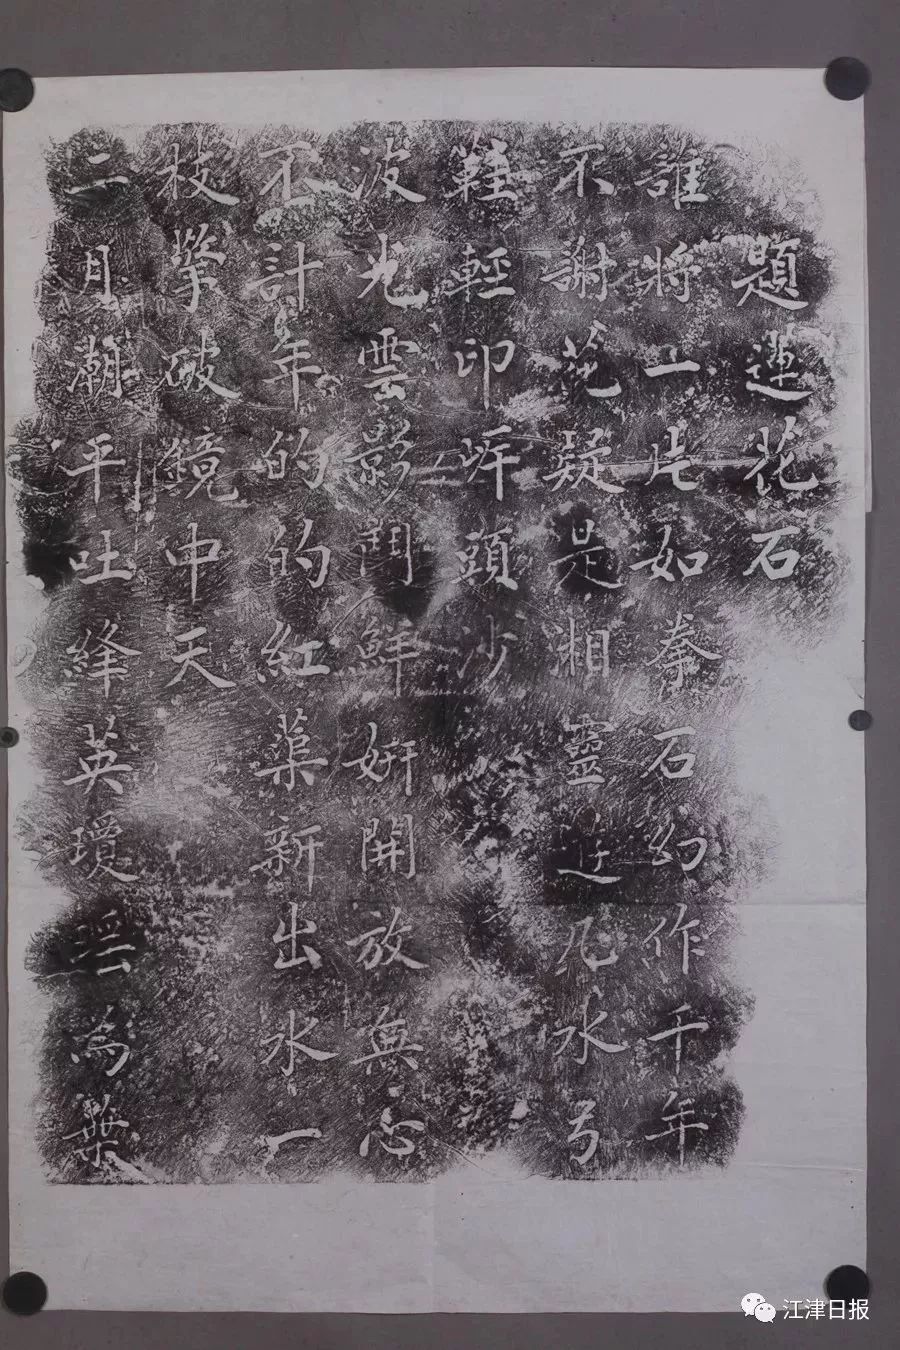 題蓮花石
誰將一片如拳石幻作千年
不謝花疑是湘靈遊凡水弓
鞋輕印岸頭沙
波光雲影鬥鮮妍開放無心
不計年的的紅蕖新出水一
枝擎破鏡中天
二月潮平吐絳英瓊為蘂
江津日报